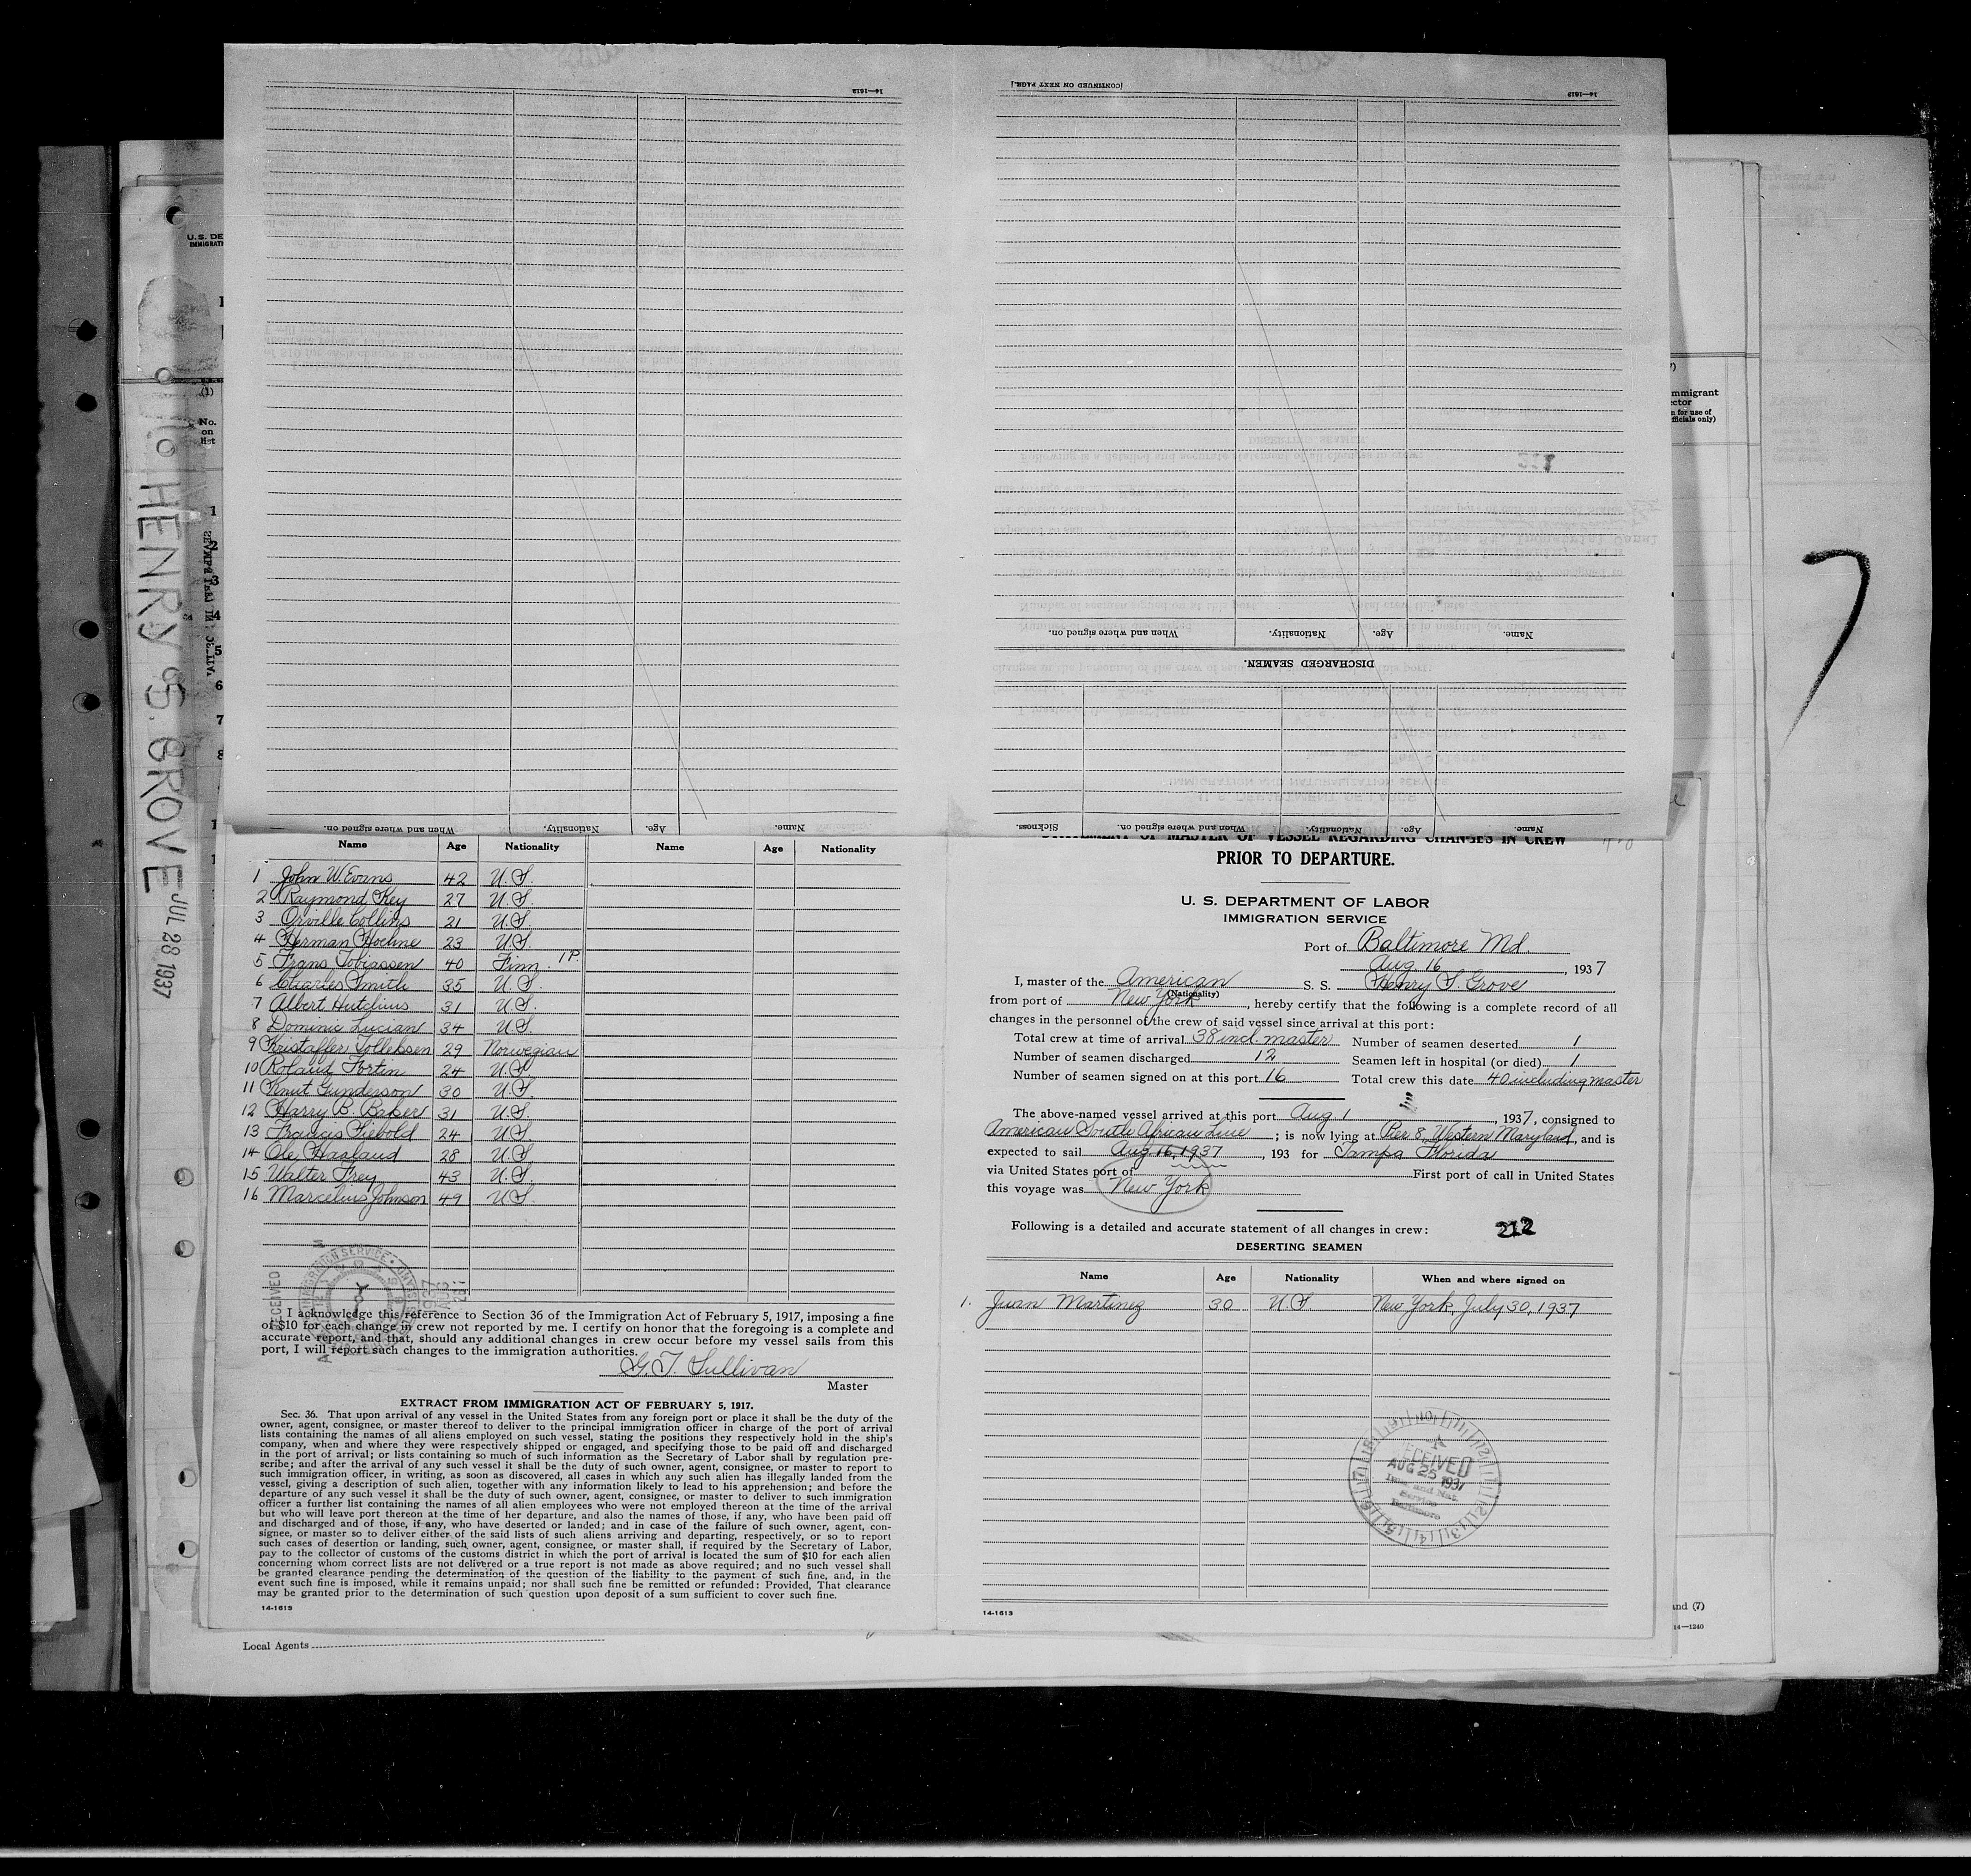 14—1612
[CONTINUED ON NEXT PAGE.]
14—1612
Name.
Age.
Nationality.
When and where signed on.
DISCHARGED SEAMEN.
Name.
Age.
Nationality.
When and where signed on.
Sickness.
Name.
Age.
Nationality.
When and where signed on.
U. S. DE
IMMIGRATI
(1)
No.
on
list
1
2
3
4
5
6
7
8
HENRY S. GROVE JUL 28 1937
7
mmigrant
ector
n for use of
fficials only)
Name Age Nationality Name Age Nationality
1 John W. Evans 42 U.S.
2 Raymond Key 27 U.S.
3 Orville Collins 21 U.S.
4 Herman Hoehne 23 U.S.
5 Frans Tobiassen 40 Finn. 1P.
6 Charles Smith 35 U.S.
7 Albert Hutchins 31 U.S.
8 Dominic Lucian 34 U.S.
9 Kristaffer Tolleksen 29 Norwegian
10 Roland Fortin 24 U.S.
11 Knut Gunderson 30 U.S.
12 Harry B. Baker 31 U.S.
13 Francis Siebold 24 U.S.
14 Ole Haaland 28 U.S.
15 Walter Frey 43 U.S.
16 Marcelius Johnson 49 U.S.
RECEIVED
IMMIGRATION SERVICE
I acknowledge this reference to Section 36 of the Immigration Act of February 5, 1917, imposing a fine
of $10 for each change in crew not reported by me. I certify on honor that the foregoing is a complete and
accurate report, and that, should any additional changes in crew occur before my vessel sails from this
port, I will report such changes to the immigration authorities.
G. T. Sullivan
Master
EXTRACT FROM IMMIGRATION ACT OF FEBRUARY 5, 1917.
Sec. 36. That upon arrival of any vessel in the United States from any foreign port or place it shall be the duty of the
owner, agent, consignee, or master thereof to deliver to the principal immigration officer in charge of the port of arrival
lists containing the names of all aliens employed on such vessel, stating the positions they respectively hold in the ship's
company, when and where they were respectively shipped or engaged, and specifying those to be paid off and discharged
in the port of arrival; or lists containing so much of such information as the Secretary of Labor shall by regulation pre-
scribe; and after the arrival of any such vessel it shall be the duty of such owner, agent, consignee, or master to report to
such immigration officer, in writing, as soon as discovered, all cases in which any such alien has illegally landed from the
vessel, giving a description of such alien, together with any information likely to lead to his apprehension; and before the
departure of any such vessel it shall be the duty of such owner, agent, consignee, or master to deliver to such immigration
officer a further list containing the names of all alien employees who were not employed thereon at the time of the arrival
but who will leave port thereon at the time of her departure, and also the names of those, if any, who have been paid off
and discharged and of those, if any, who have deserted or landed; and in case of the failure of such owner, agent, con-
signee, or master so to deliver either of the said lists of such aliens arriving and departing, respectively, or so to report
such cases of desertion or landing, such owner, agent, consignee, or master shall, if required by the Secretary of Labor,
pay to the collector of customs of the customs district in which the port of arrival is located the sum of $10 for each alien
concerning whom correct lists are not delivered or a true report is not made as above required; and no such vessel shall
be granted clearance pending the determination of the question of the liability to the payment of such fine, and, in the
event such fine is imposed, while it remains unpaid; nor shall such fine be remitted or refunded: Provided, That clearance
may be granted prior to the determination of such question upon deposit of a sum sufficient to cover such fine.
14-1613
Local Agents
OF MASTER OF VESSEL REGARDING CHANGES IN CREW
PRIOR TO DEPARTURE.
U. S. DEPARTMENT OF LABOR
IMMIGRATION SERVICE
Port of Baltimore Md.
Aug. 16, 1937
I, master of the American S. S. Henry S. Grove
(Nationality)
from port of New York, hereby certify that the following is a complete record of all
changes in the personnel of the crew of said vessel since arrival at this port:
Total crew at time of arrival 38 incl. master Number of seamen deserted 1
Number of seamen discharged 12 Seamen left in hospital (or died) 1
Number of seamen signed on at this port 16 Total crew this date 40 including master
The above-named vessel arrived at this port Aug. 1, 1937, consigned to
American South African Line; is now lying at Pier 8, Western Maryland, and is
expected to sail Aug 16, 1937, 193 for Tampa Florida
via United States port of First port of call in United States
this voyage was New York
Following is a detailed and accurate statement of all changes in crew: 212
DESERTING SEAMEN
Name Age Nationality When and where signed on
1. Juan Martinez 30 U.S. New York, July 30, 1937
RECEIVED
AUG 25 1937
14-1613
and (7)
14—1240